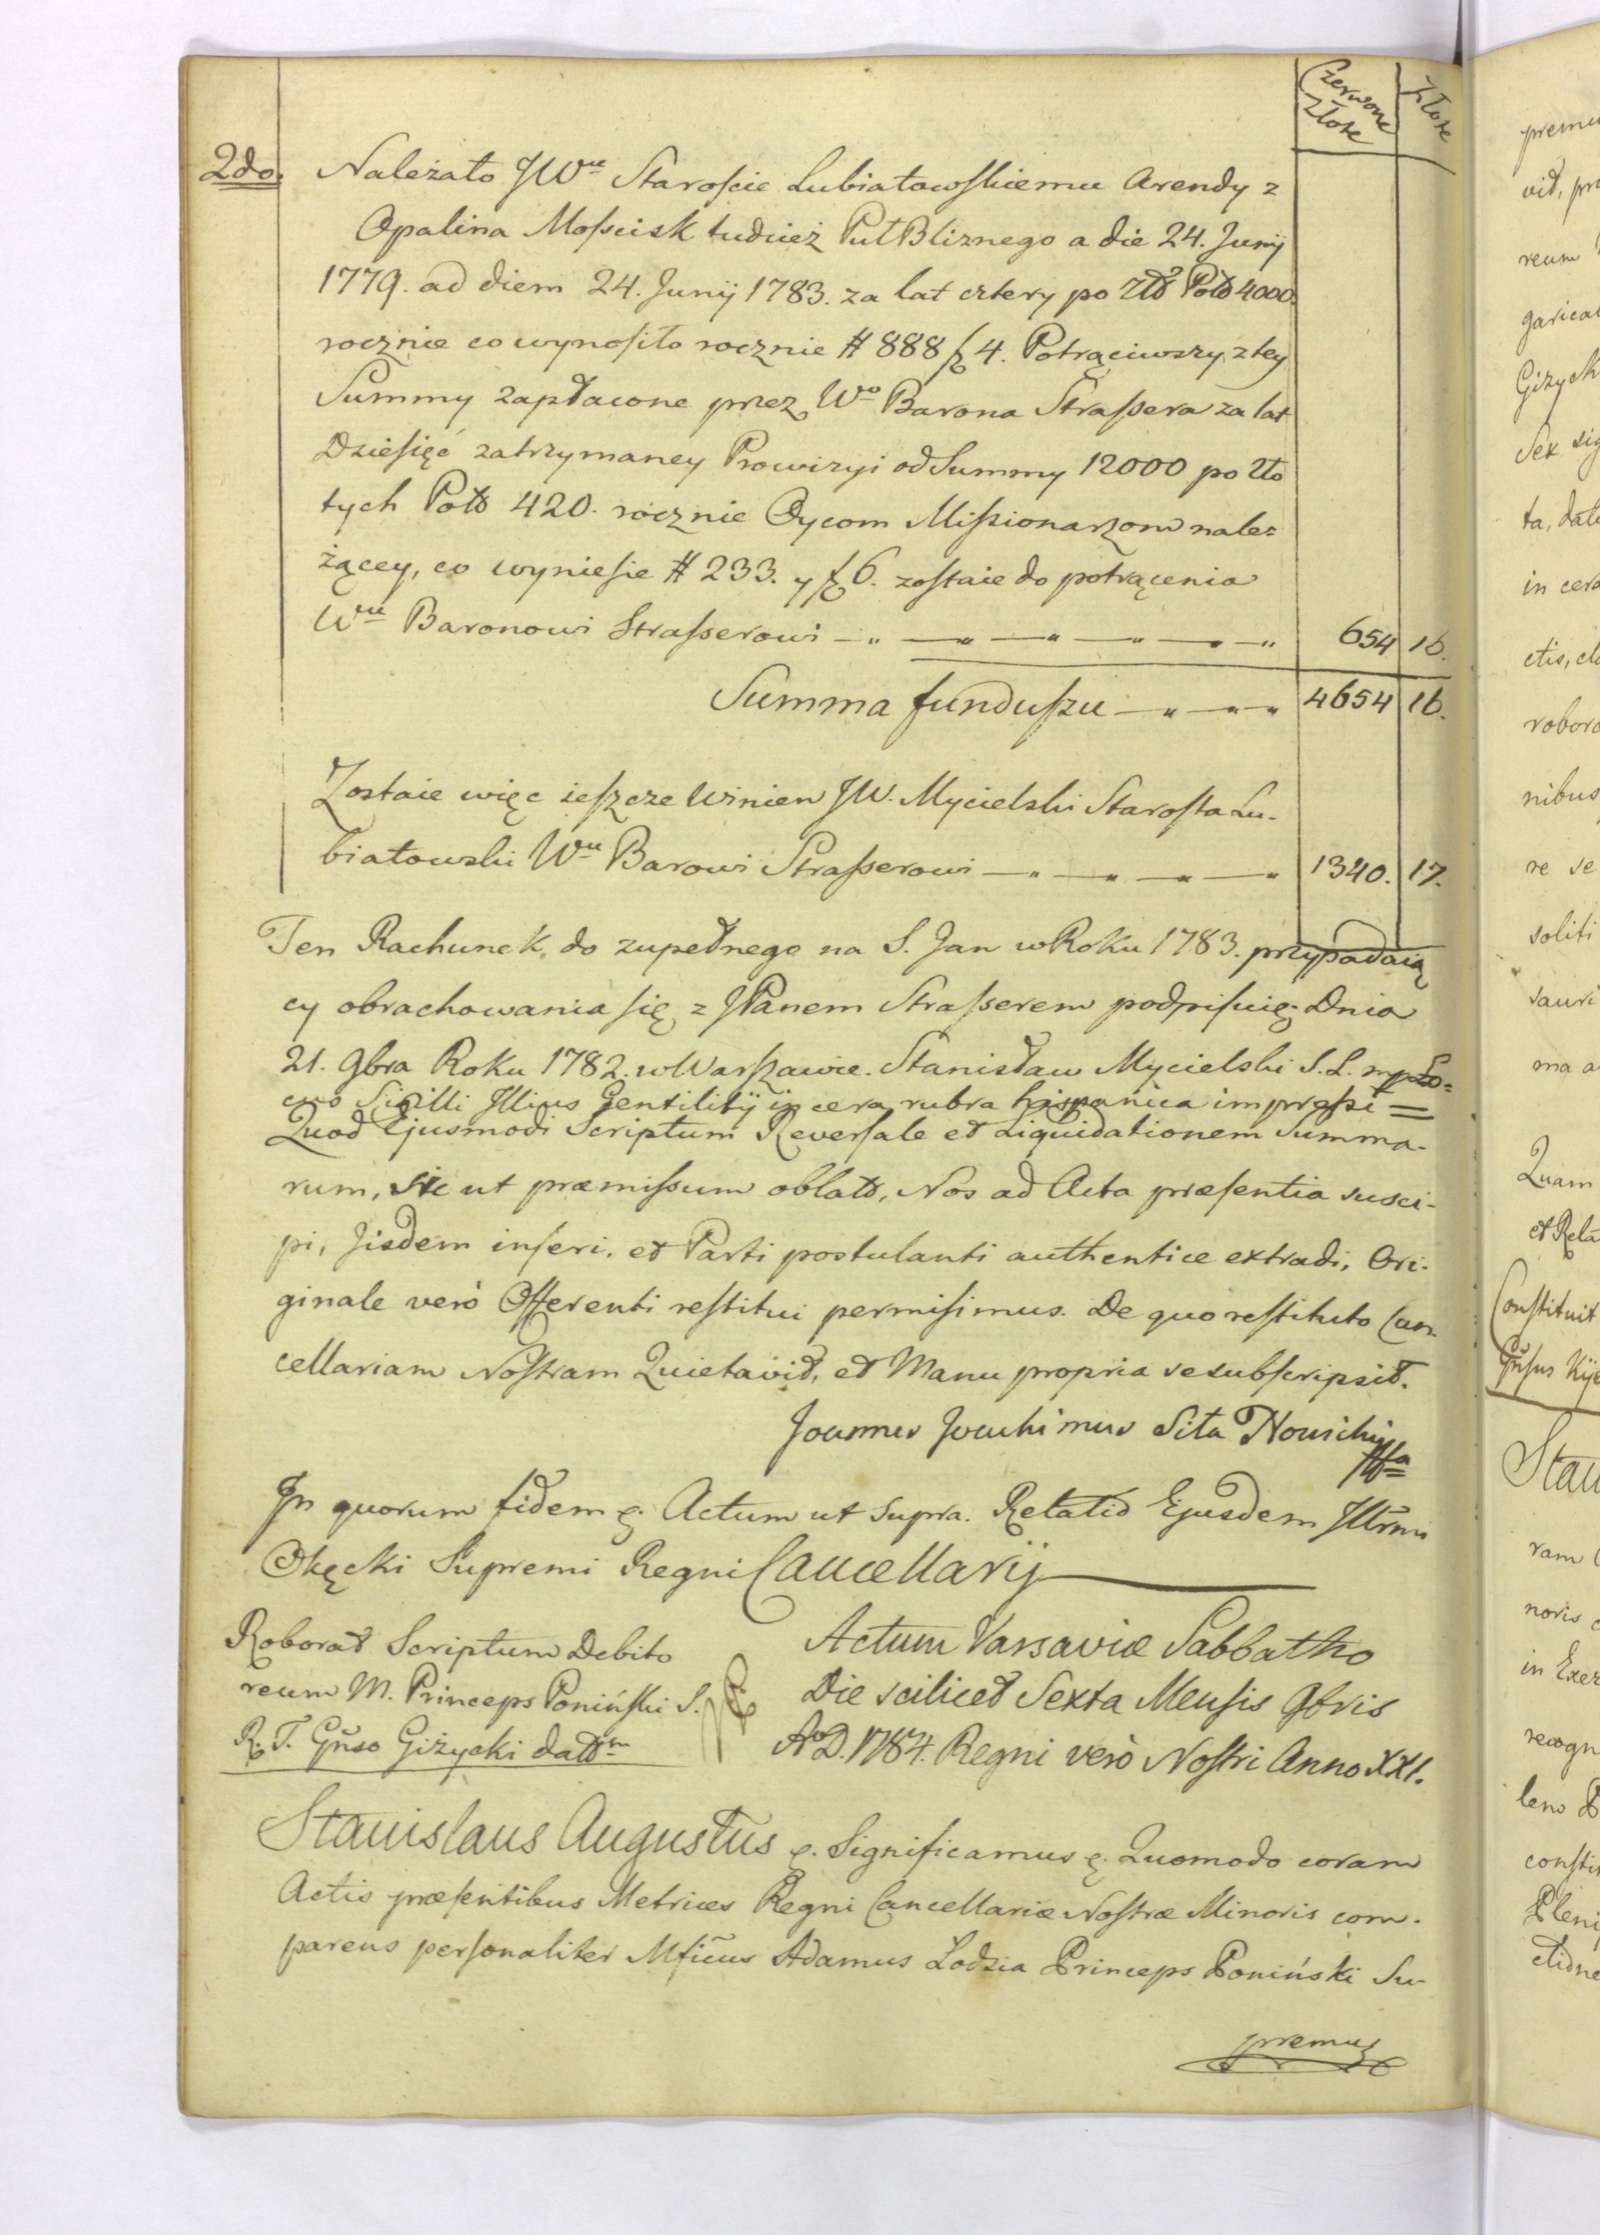 Czerwone Złote
Złote
2do. Należało JWu Staroście Lubiatowskiemu Arendy z
Opalina Mościsk tudzież Puł Bliznego a die 24. Junij
1779. ad diem 24. Junij 1783. za lat cztery po Złt Pols 4000.
rocznie co wynosiło rocznie # 888 f 4. Potrąciwszy z tey
Summy zapłacone przez Wo Barona Strassera za lat
Dziesięć zatrzymaney Prowizyi od Summy 12000 po Zło
tych Pols 420. rocznie Oycom Missionarzom nale=
żącey, co wyniesie # 233. y f 6. zostaie do potrącenia
Wu Baronowi Strasserowi 654 16.
Summa funduszu 4654 16.
Zostaie więc ieszcze winien JW. Mycielski Starosta Lu-
biatowski Wu Barowi Strasserowi 1340. 17.
Ten Rachunek, do zupełnego na S. Jan w Roku 1783. przypadaią
cy obrachowania się z JPanem Strasserem podpisuię. Dnia
21. 9bra Roku 1782. w Warszawie. Stanisław Mycielski S. L. mp Lo=
cus Sigilli Illius Gentilitij in cera rubra hispanica impressi =
Quod Ejusmodi Scriptum Reversale et Liquidationem Summa-
rum, sic ut præmissum oblats, Nos ad Acta præsentia susci-
pi, Iisdem inseri, et Parti postulanti authentice extradi, Ori-
ginale verò Offerenti restitui permisimus. De quo restituto Can-
cellariam Nostram Quietavit, et Manu propria se subscripsit.
Joannes Joachimus Sita Nowicki
In quorum fidem &. Actum ut supra. Relatio Ejusdem Illrmi
Okęcki Supremi Regni Cancellarij
Roborat Scriptum Debito
reum M. Princeps Poniński S.
R. T. Gnso Giżycki datm
Actum Varsaviæ Sabbatho
Die scilicet Sexta Mensis 9bris
Ao D. 1784. Regni verò Nostri Anno XXI.
Stanislaus Augustus &. Significamus &. Quomodo coram
Actis præsentibus Metrices Regni Cancellariæ Nostræ Minoris com-
parens personaliter Mficus Adamus Lodzia Princeps Poniński Su-
premus
vit, pr
reum
garica
Giżyck
Sex sig
ta, dat
in cera
ctis, cla
robora
nibus
re se
soliti
ma a
Quam
et Rela
Constituit
Stan
ram
noris
in Exe
recogn
constit
Pleni